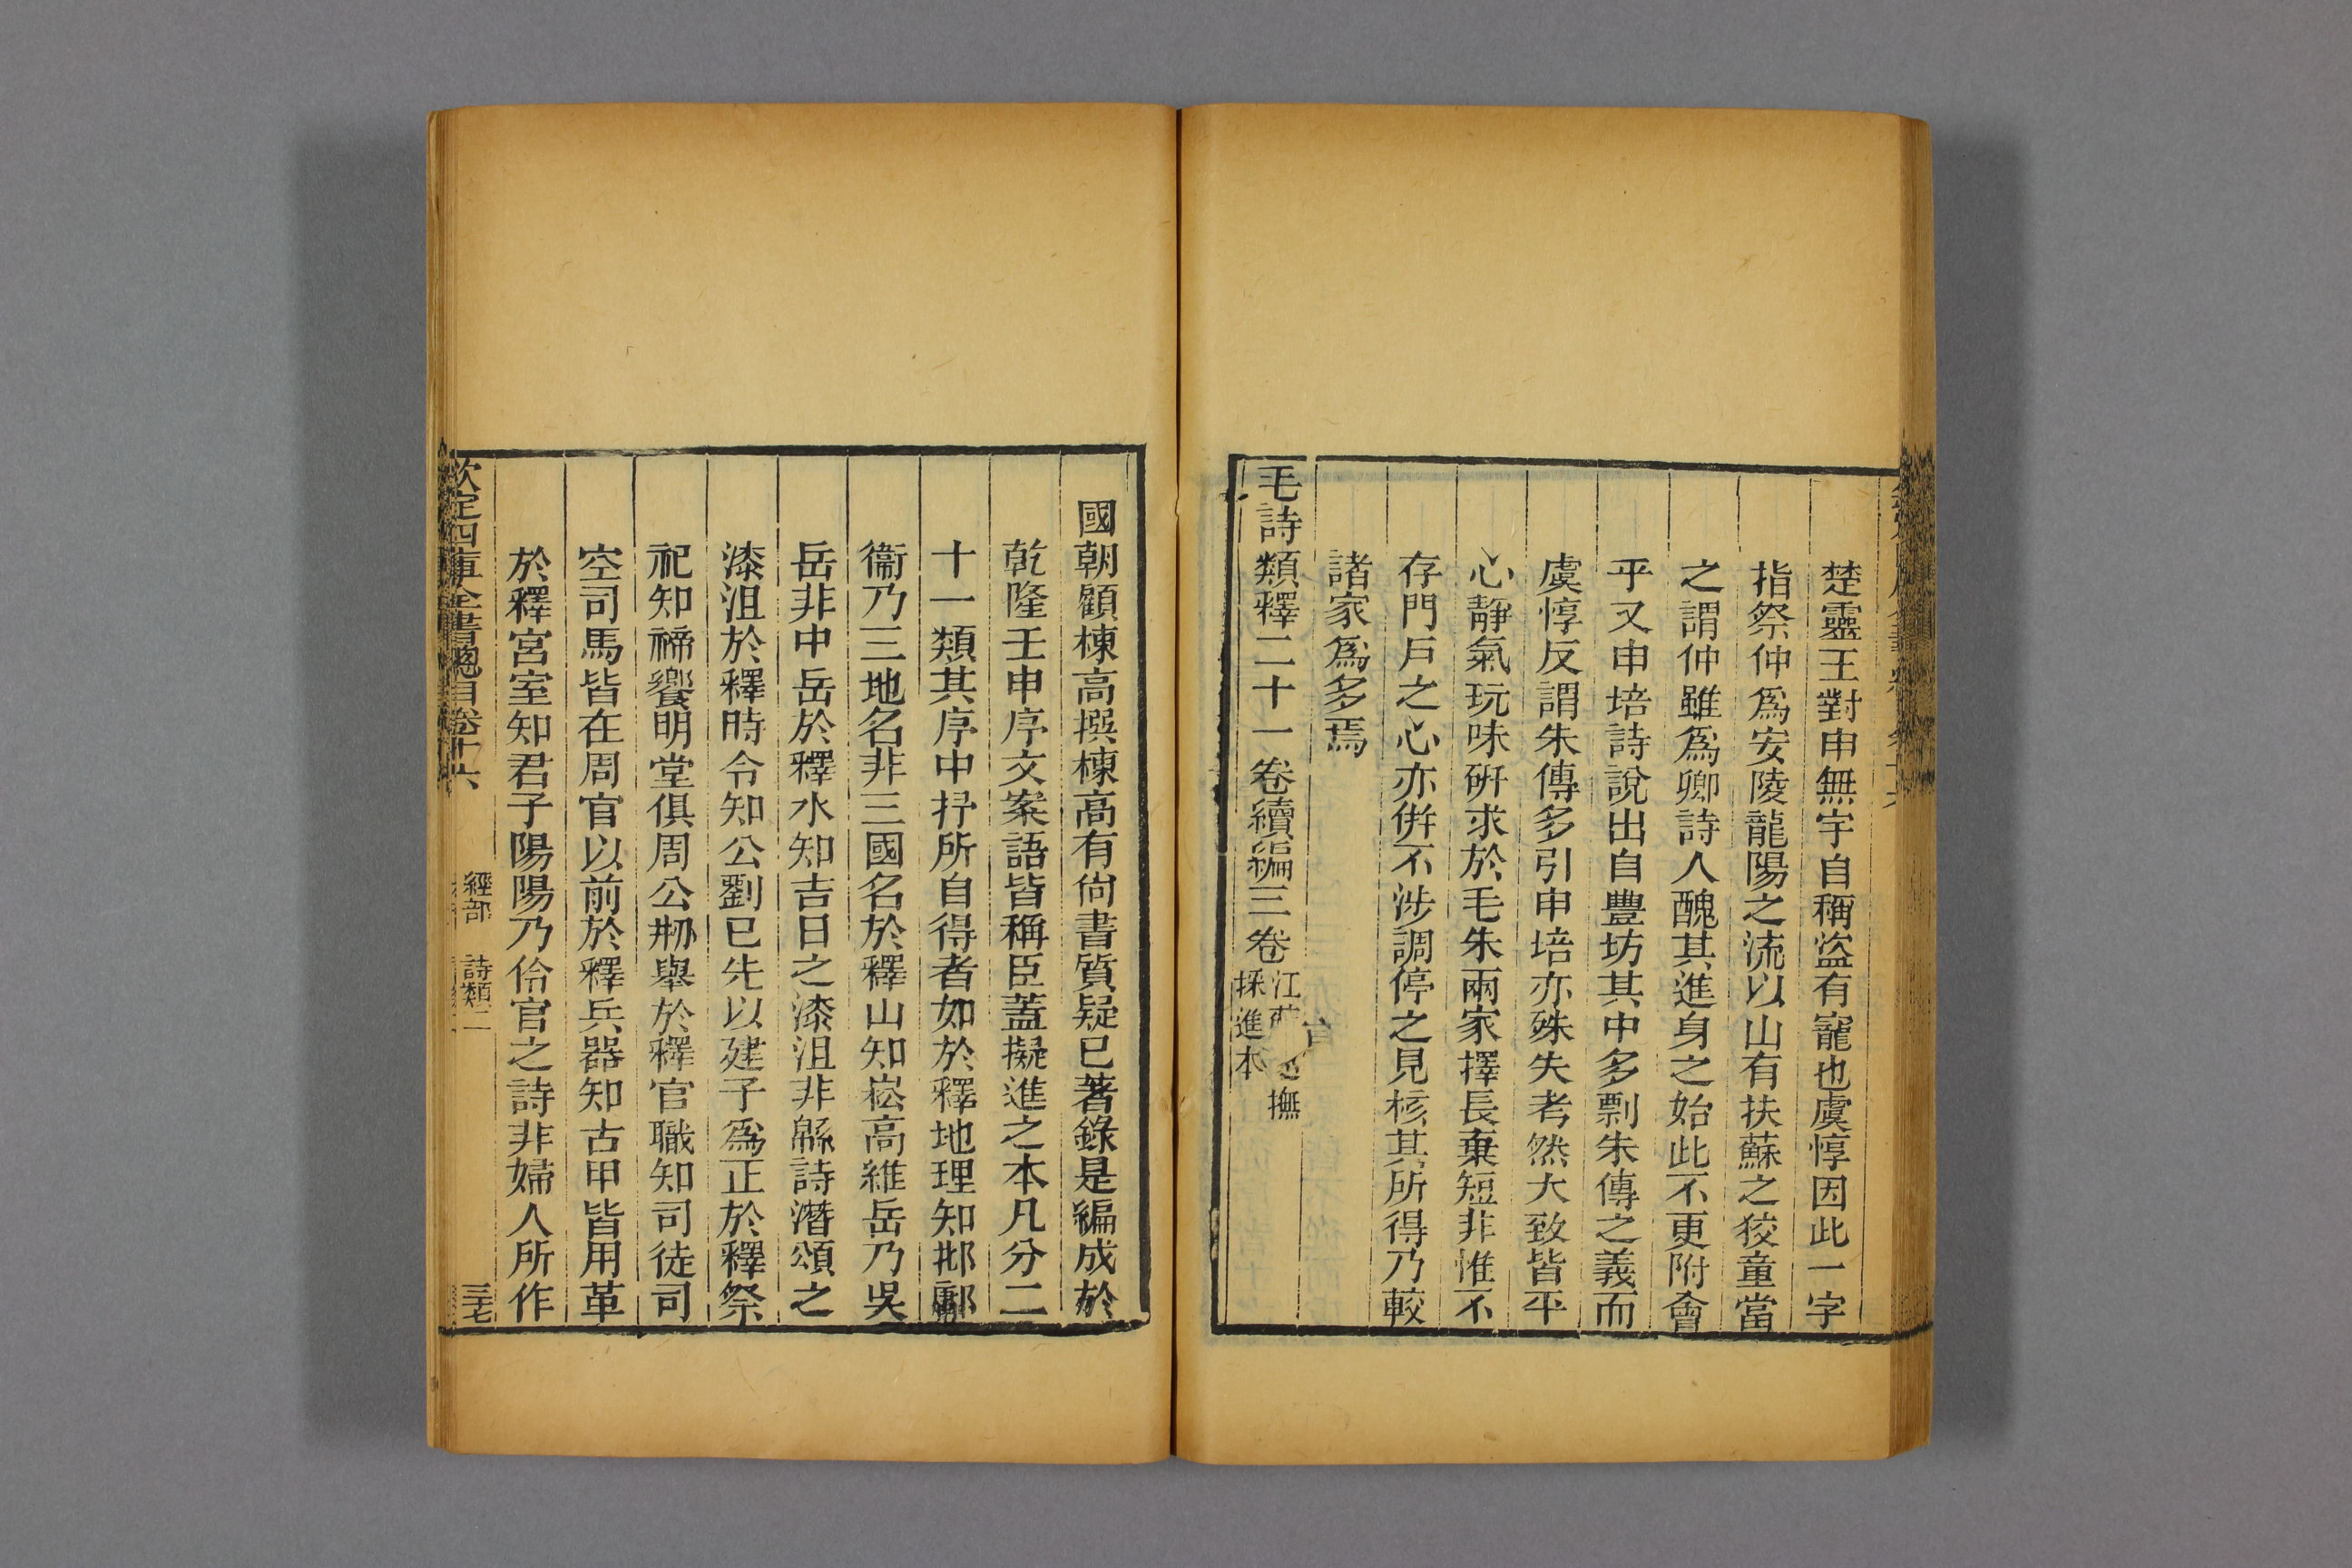 楚靈王對申無宇自稱盜有寵也虞惇因此一字
指祭仲爲安陵龍陽之流以山有扶蘇之狡童當
之謂仲雖爲卿詩人醜其進身之始此不更附會
乎又申培詩說出自豐坊其中多剽朱傳之義而
虞惇反謂朱傳多引申培亦殊失考然大致皆平
心靜氣玩味硏求於毛朱兩家擇長棄短非惟不
存門戶之心亦併不涉調停之見核其所得乃較
諸家爲多焉
毛詩類釋二十一卷續編三卷
江 撫
採進本
國朝顧棟高撰棟高有尙書質疑已著錄是編成於
乾隆壬申序文案語皆稱臣蓋擬進之本凡分二
十一類其序中抒所自得者如於釋地理知邶鄘
衞乃三地名非三國名於釋山知崧高維岳乃吳
岳非中岳於釋水知吉日之漆沮非緜詩潛頌之
漆沮於釋時令知公劉已先以建子爲正於釋祭
祀知禘饗明堂俱周公刱舉於釋官職知司徒司
空司馬皆在周官以前於釋兵器知古甲皆用革
於釋宮室知君子陽陽乃伶官之詩非婦人所作
欽定四庫全書總目卷十六
經部 詩類二
三七